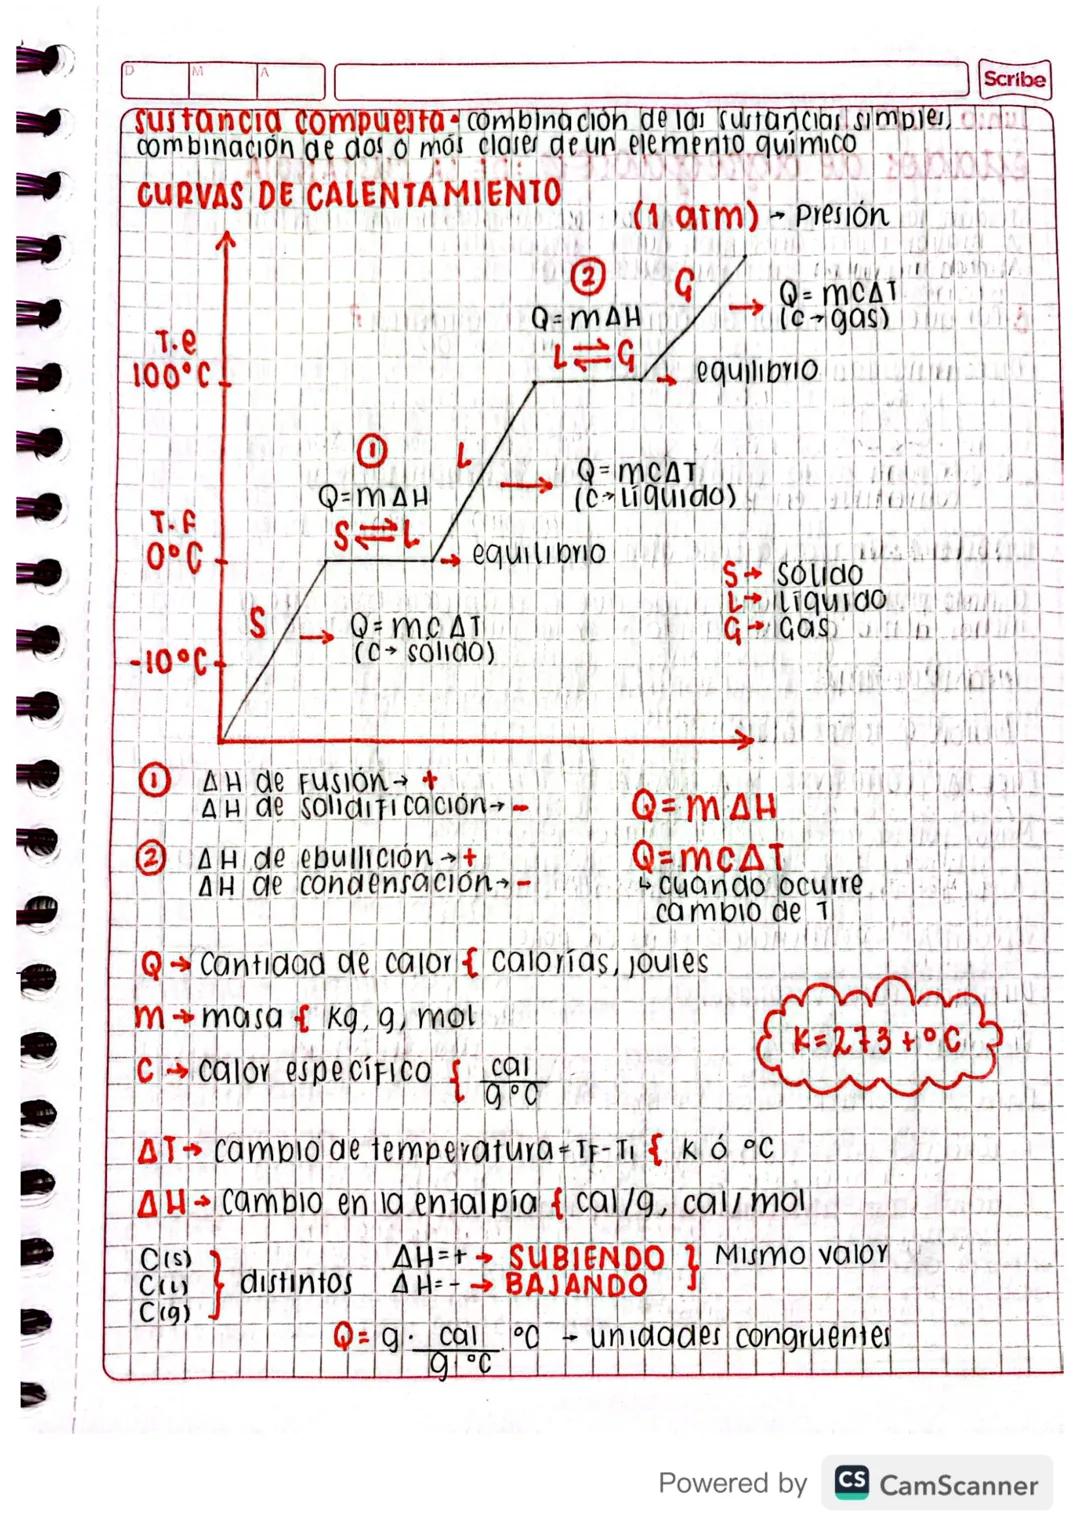 D M A
Scribe
sustancia compuesta • combinación de las sustancias simples,
combinación de dos o más clases de un elemento químico
CURVAS DE CALENTAMIENTO
(1 atm) → Presión
② G
Q = mCΔT
(C → gas)
Q = mΔH
L ⇌ G
T.e
100°C
→ equilibrio
① L
Q = mCΔT
(C → Líquido)
Q = mΔH
S ⇌ L
T.f
0°C
→ equilibrio
S → Sólido
L → líquido
G → Gas
S
Q = mCΔT
(C → sólido)
-10°C
① ΔH de Fusión → +
ΔH de solidificación → -
Q = mΔH
② ΔH de ebullición → +
ΔH de condensación → -
Q = mCΔT
↳ cuando ocurre
cambio de T
Q → Cantidad de calor { calorías, joules
m → masa { Kg, g, mol
K = 273 + °C
C → calor específico { cal
g °C
ΔT → cambio de temperatura = TF - Ti { K ó °C
ΔH → Cambio en la entalpía { cal/g, cal/mol
C(s)
C(L)
C(g)
} distintos
ΔH = + → SUBIENDO
ΔH = - → BAJANDO
} Mismo valor
Q = g · cal °C → unidades congruentes
g °C
Powered by CS CamScanner